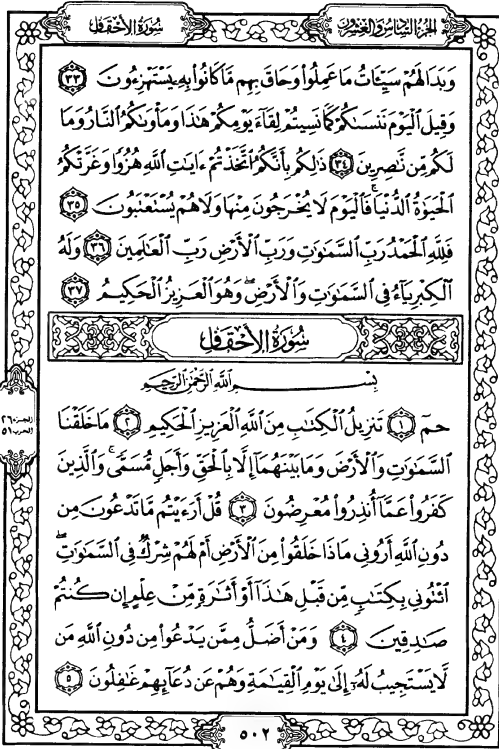 سُورَةُ الْأَحْقَافِ
الجُزءُ السَّادِسُ وَالعِشْرُون
وَبَدَا لَهُمْ سَيِّئَاتُ مَا عَمِلُوا وَحَاقَ بِهِم مَّا كَانُوا بِهِ يَسْتَهْزِءُونَ ٣٣
وَقِيلَ الْيَوْمَ نَنسَىٰكُمْ كَمَا نَسِيتُمْ لِقَاءَ يَوْمِكُمْ هَٰذَا وَمَأْوَىٰكُمُ النَّارُ وَمَا
لَكُم مِّن نَّٰصِرِينَ ٣٤ ذَٰلِكُم بِأَنَّكُمُ اتَّخَذْتُمْ ءَايَٰتِ اللَّهِ هُزُوًا وَغَرَّتْكُمُ
الْحَيَوٰةُ الدُّنْيَا ۚ فَالْيَوْمَ لَا يُخْرَجُونَ مِنْهَا وَلَا هُمْ يُسْتَعْتَبُونَ ٣٥
فَلِلَّهِ الْحَمْدُ رَبِّ السَّمَٰوَٰتِ وَرَبِّ الْأَرْضِ رَبِّ الْعَٰلَمِينَ ٣٦ وَلَهُ
الْكِبْرِيَاءُ فِي السَّمَٰوَٰتِ وَالْأَرْضِ ۖ وَهُوَ الْعَزِيزُ الْحَكِيمُ ٣٧
سُورَةُ الْأَحْقَافِ
بِسْمِ اللَّهِ الرَّحْمَٰنِ الرَّحِيمِ
حمٓ ١ تَنزِيلُ الْكِتَٰبِ مِنَ اللَّهِ الْعَزِيزِ الْحَكِيمِ ٢ مَا خَلَقْنَا
السَّمَٰوَٰتِ وَالْأَرْضَ وَمَا بَيْنَهُمَا إِلَّا بِالْحَقِّ وَأَجَلٍ مُّسَمًّى ۚ وَالَّذِينَ
كَفَرُوا عَمَّا أُنذِرُوا مُعْرِضُونَ ٣ قُلْ أَرَءَيْتُم مَّا تَدْعُونَ مِن
دُونِ اللَّهِ أَرُونِي مَاذَا خَلَقُوا مِنَ الْأَرْضِ أَمْ لَهُمْ شِرْكٌ فِي السَّمَٰوَٰتِ ۖ
ائْتُونِي بِكِتَٰبٍ مِّن قَبْلِ هَٰذَا أَوْ أَثَٰرَةٍ مِّنْ عِلْمٍ إِن كُنتُمْ
صَٰدِقِينَ ٤ وَمَنْ أَضَلُّ مِمَّن يَدْعُوا مِن دُونِ اللَّهِ مَن
لَّا يَسْتَجِيبُ لَهُ إِلَىٰ يَوْمِ الْقِيَٰمَةِ وَهُمْ عَن دُعَائِهِمْ غَٰفِلُونَ ٥
الجزء ٢٦
الحزب ٥١
٥٠٢